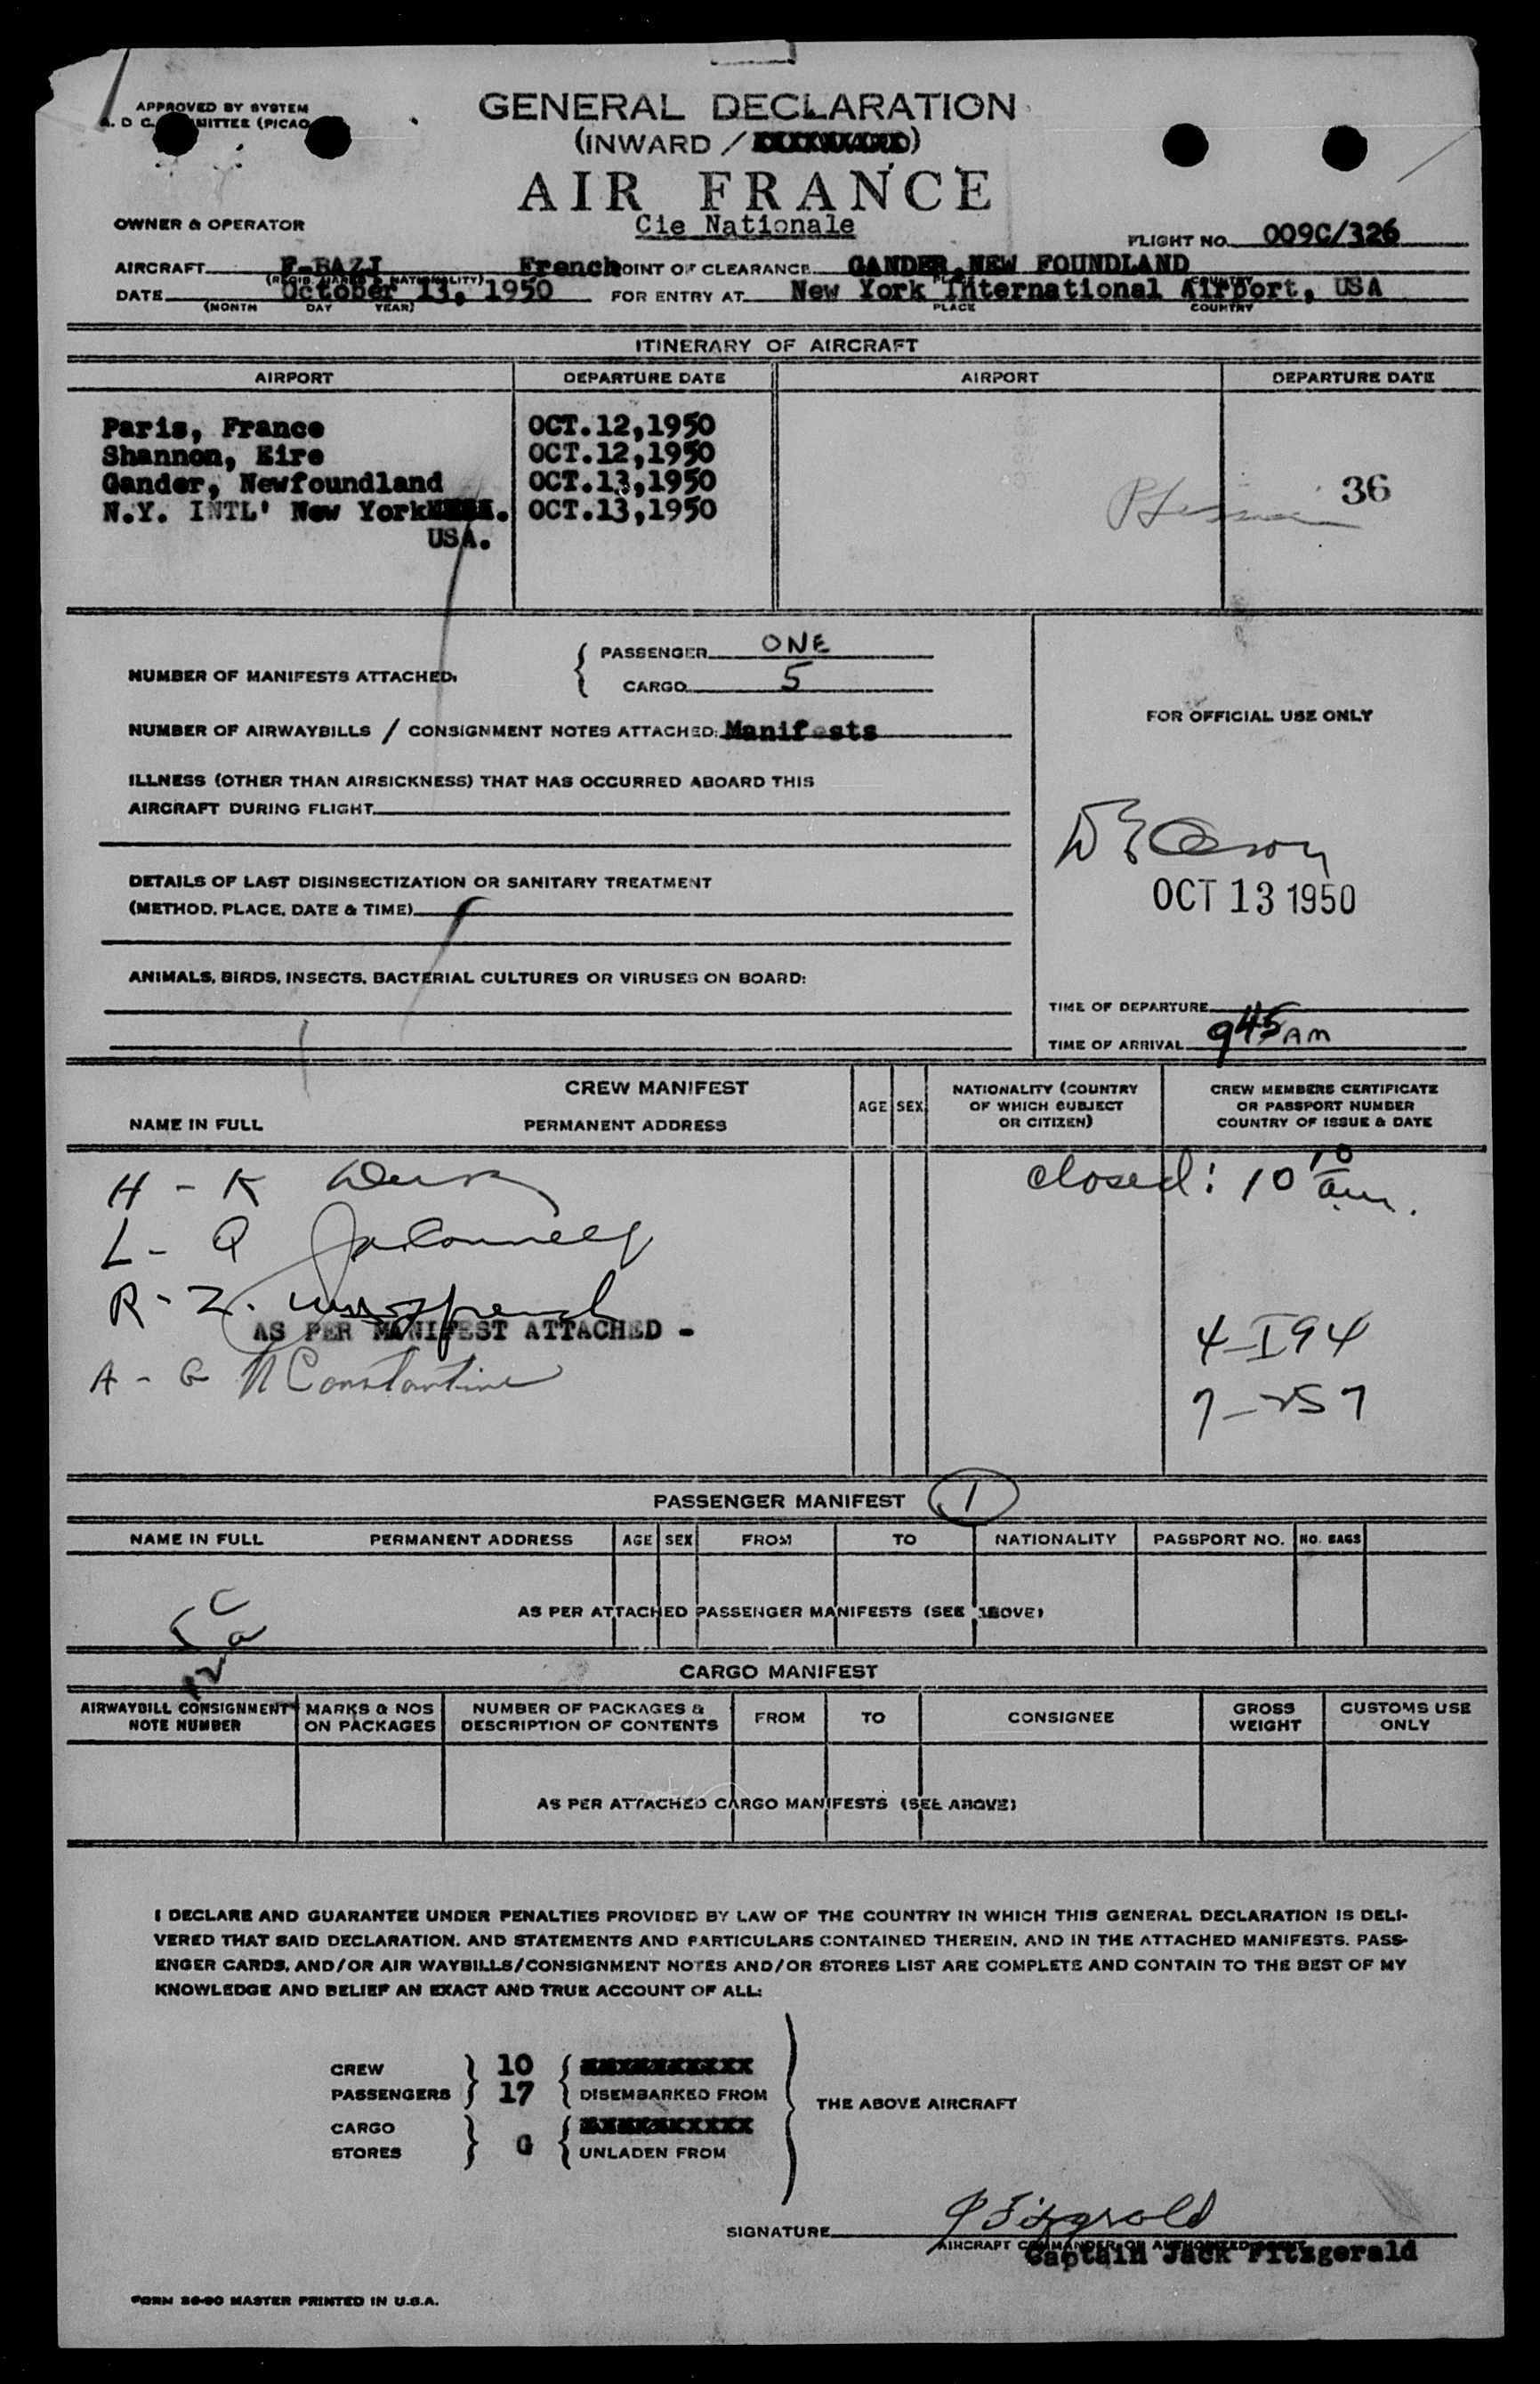 APPROVED BY SYSTEM
GENERAL DECLARATION
(INWARD /
AIR FRANCE
Cie Nationale
OWNER & OPERATOR
FLIGHT NO. 009C/326
AIRCRAFT F-BAZI French POINT OF CLEARANCE GANDER, NEW FOUNDLAND
DATE October 13, 1950 FOR ENTRY AT New York International Airport, USA
(MONTH DAY YEAR) PLACE COUNTRY
ITINERARY OF AIRCRAFT
AIRPORT DEPARTURE DATE AIRPORT DEPARTURE DATE
Paris, France OCT.12,1950
Shannon, Eire OCT.12,1950
Gander, Newfoundland OCT.13,1950 36
N.Y. INTL' New York OCT.13,1950
USA.
NUMBER OF MANIFESTS ATTACHED.
PASSENGER ONE
CARGO 5
FOR OFFICIAL USE ONLY
NUMBER OF AIRWAYBILLS / CONSIGNMENT NOTES ATTACHED: Manifests
ILLNESS (OTHER THAN AIRSICKNESS) THAT HAS OCCURRED ABOARD THIS
AIRCRAFT DURING FLIGHT
DETAILS OF LAST DISINSECTIZATION OR SANITARY TREATMENT
(METHOD, PLACE, DATE & TIME)
OCT 13 1950
ANIMALS, BIRDS, INSECTS, BACTERIAL CULTURES OR VIRUSES ON BOARD:
TIME OF DEPARTURE
TIME OF ARRIVAL 945 AM
CREW MANIFEST
NAME IN FULL PERMANENT ADDRESS
AGE SEX
NATIONALITY (COUNTRY
OF WHICH SUBJECT
OR CITIZEN)
CREW MEMBERS CERTIFICATE
OR PASSPORT NUMBER
COUNTRY OF ISSUE & DATE
closed: 10 10 am.
H - K
L - Q
R - Z.
AS PER MANIFEST ATTACHED -
A - G N Constantine
4-I94
7-257
PASSENGER MANIFEST 1
NAME IN FULL PERMANENT ADDRESS AGE SEX FROM TO NATIONALITY PASSPORT NO. NO. BAGS
AS PER ATTACHED PASSENGER MANIFESTS (SEE ABOVE)
CARGO MANIFEST
AIRWAYBILL CONSIGNMENT
NOTE NUMBER
MARKS & NOS
ON PACKAGES
NUMBER OF PACKAGES &
DESCRIPTION OF CONTENTS
FROM TO CONSIGNEE
GROSS
WEIGHT
CUSTOMS USE
ONLY
AS PER ATTACHED CARGO MANIFESTS (SEE ABOVE)
I DECLARE AND GUARANTEE UNDER PENALTIES PROVIDED BY LAW OF THE COUNTRY IN WHICH THIS GENERAL DECLARATION IS DELI-
VERED THAT SAID DECLARATION, AND STATEMENTS AND PARTICULARS CONTAINED THEREIN, AND IN THE ATTACHED MANIFESTS, PASS-
ENGER CARDS, AND/OR AIR WAYBILLS/CONSIGNMENT NOTES AND/OR STORES LIST ARE COMPLETE AND CONTAIN TO THE BEST OF MY
KNOWLEDGE AND BELIEF AN EXACT AND TRUE ACCOUNT OF ALL:
CREW 10
PASSENGERS 17 DISEMBARKED FROM
THE ABOVE AIRCRAFT
CARGO
STORES UNLADEN FROM
SIGNATURE J Fitzgerald
AIRCRAFT COMMANDER OR AUTHORIZED AGENT
Captain Jack Fitzgerald
FORM 26-90 MASTER PRINTED IN U.S.A.